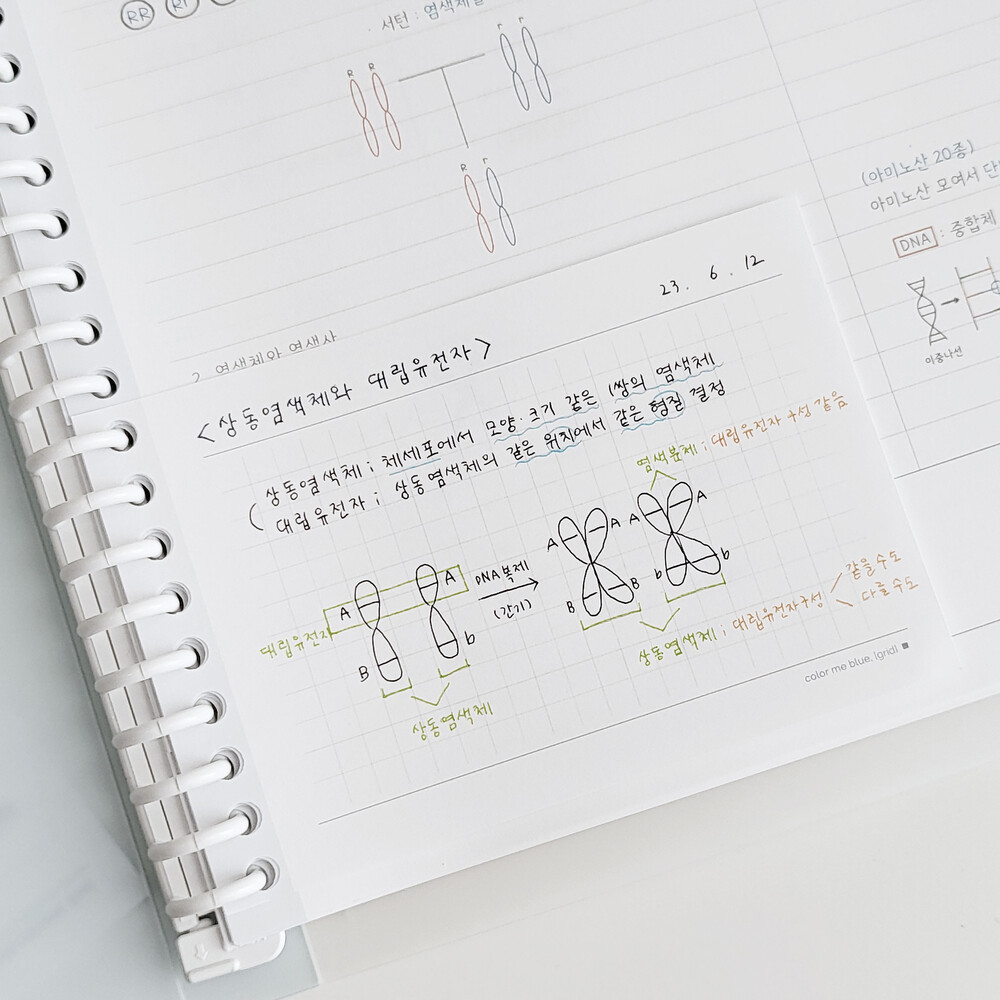 RR
서턴 : 염색체설
R R
r r
R r
(아미노산 20종)
아미노산 모여서 단
DNA : 중합체
이중나선
2. 염색체와 염색사
23. 6. 12
<상동염색체와 대립유전자>
상동염색체 ; 체세포에서 모양·크기 같은 1쌍의 염색체
대립유전자 ; 상동염색체의 같은 위치에서 같은 형질 결정
염색분체 ; 대립유전자 구성 같음
A A A A
A A
DNA복제
(간기)
대립유전자
B b
B B b b
같을수도
상동염색체 ; 대립유전자구성
다를수도
상동염색체
color me blue, [grid]